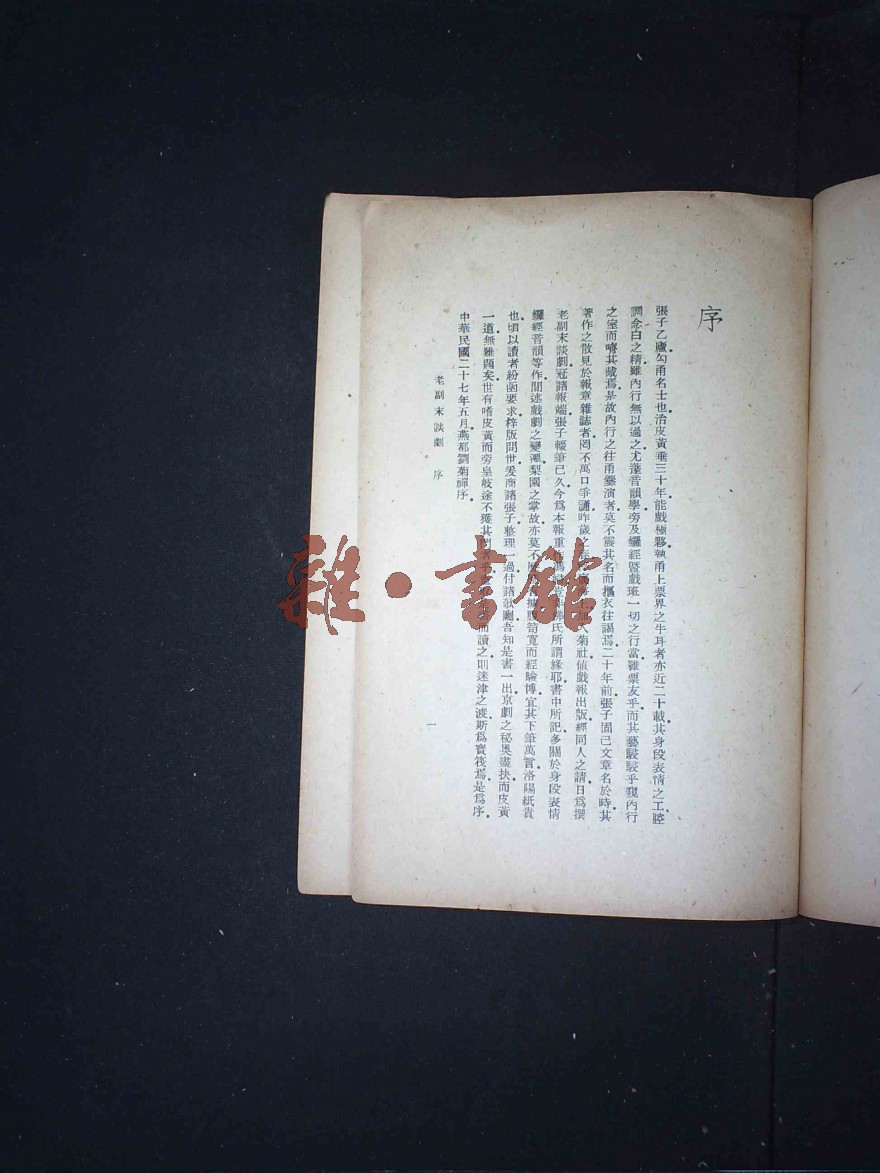 序
張子乙廬勾甬名士也治皮黃垂三十年能戲極夥執甬上票界之牛耳者亦近二十載其身段表情之工腔
調念白之精雖內行無以過之尤邃音韻學旁及鑼經暨戲班一切之行當雖票友乎而其藝駸駸乎窺內行
之室而嚌其胾焉是故內行之往甬爨演者莫不震其名而攝衣往謁焉二十年前張子固已文章名於時其
著作之散見於報章雜誌者罔不萬口爭誦昨歲之菊社値戲報出版經同人之請日爲撰
老副末談劇冠諸報端張子輟筆已久今爲本報重氏所謂緣耶書中所記多關於身段表情
鑼經音韻等作間述戲劇之變遷梨園之掌故亦莫不腹笥寬而經驗博宜其下筆萬言洛陽紙貴
也頃以讀者紛函要求梓版問世爰商諸張子整理一過付諸剞劂吾知是書一出京劇之秘奧盡抉而皮黃
一道無難題矣世有嗜皮黃而旁皇歧途不獲其門而讀之則迷津之渡斯爲寶筏焉是爲序
中華民國二十七年五月燕都劉菊禪序
老副末談劇 序
一
雜·書館